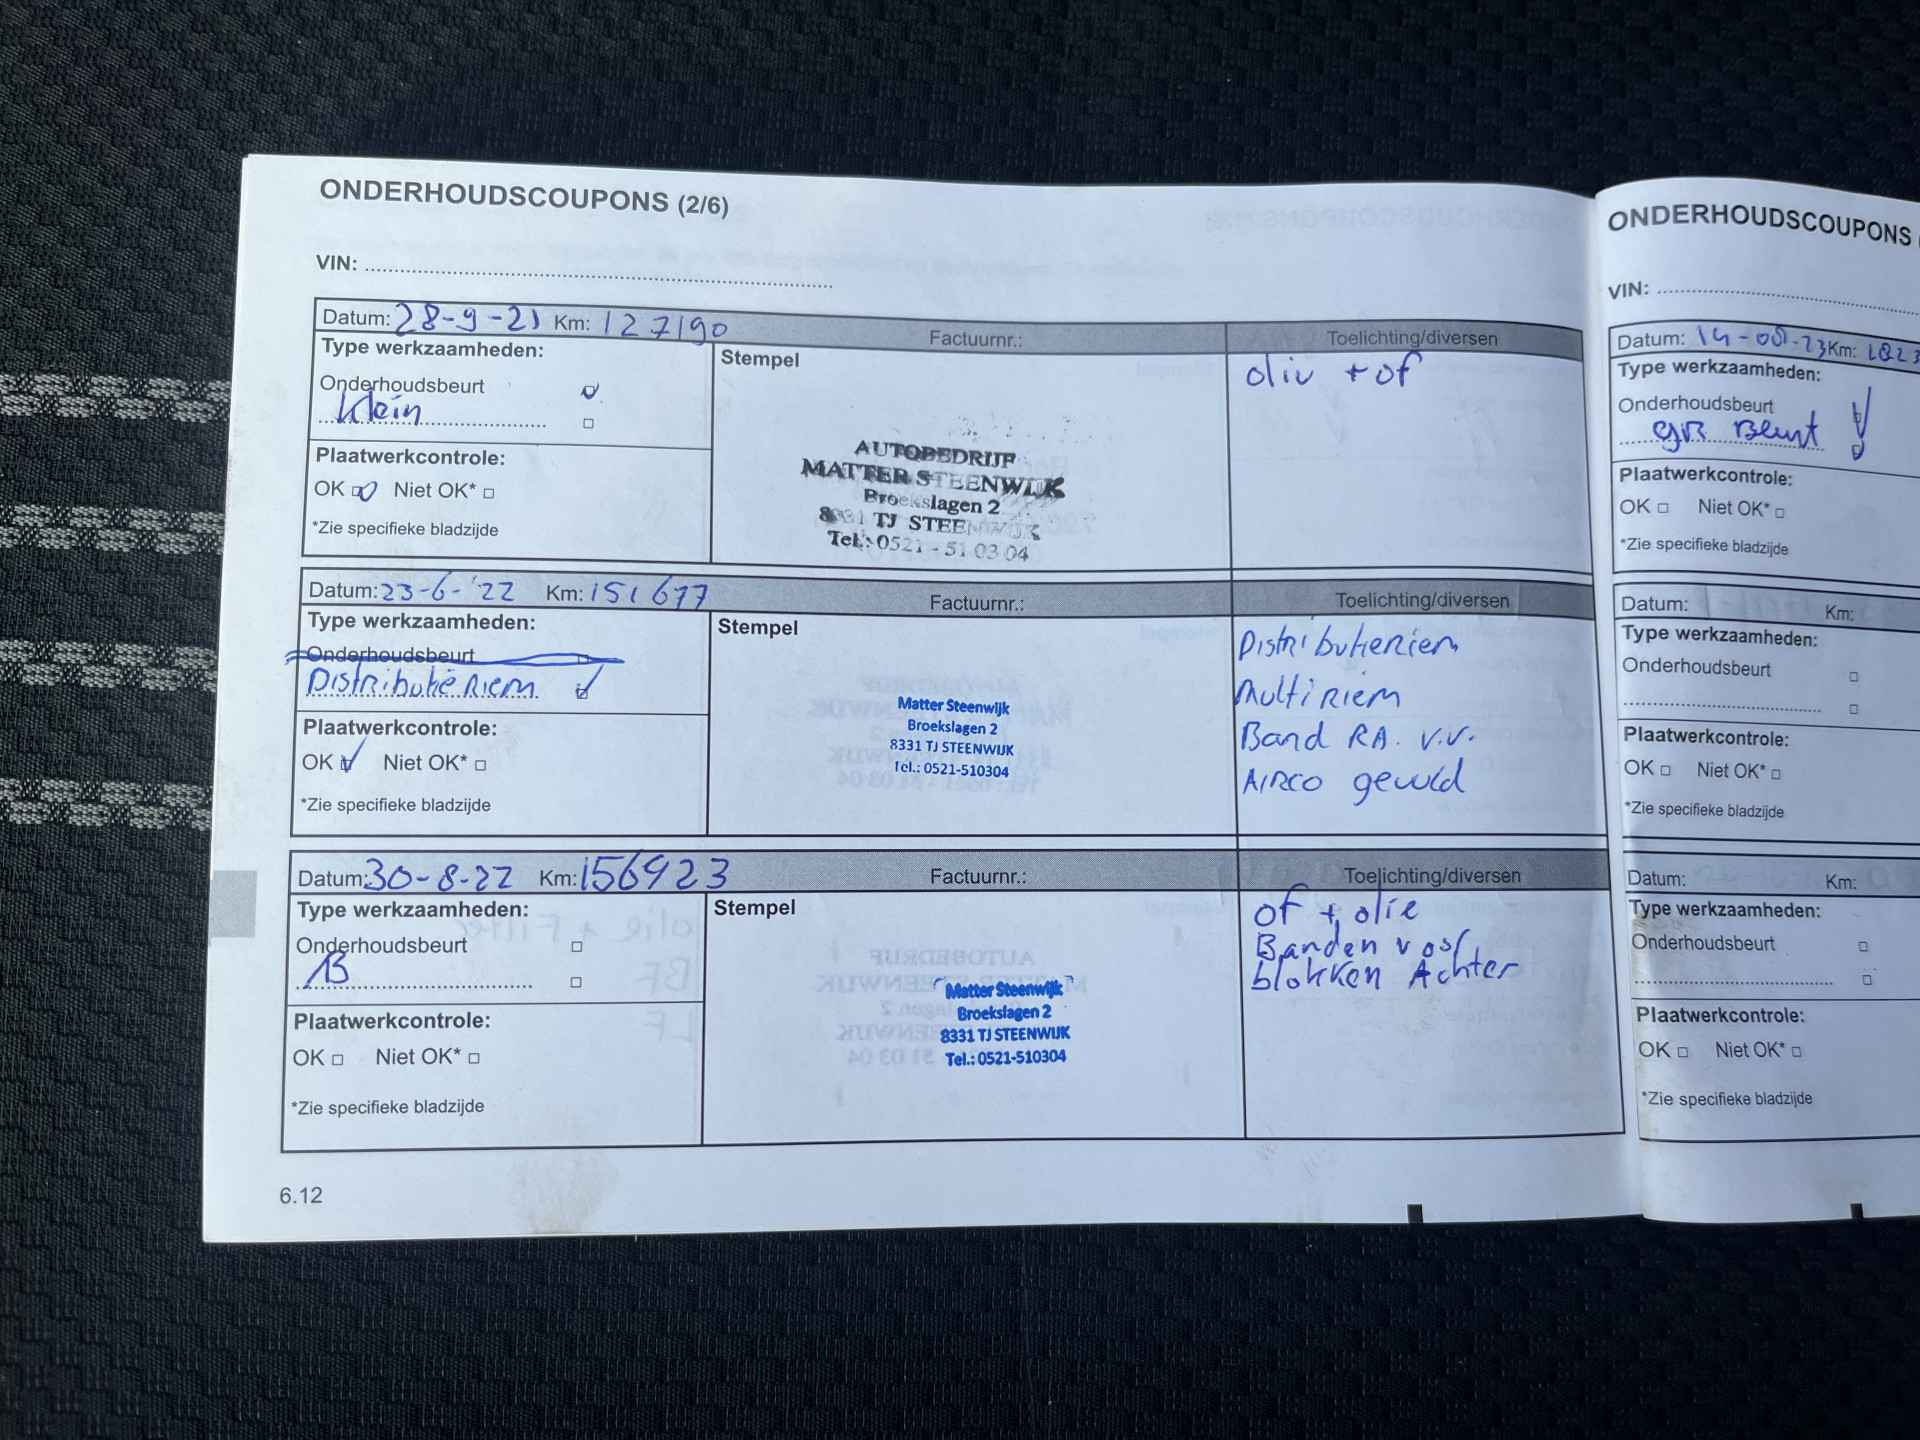 ONDERHOUDSCOUPONS (2/6)
VIN:
Datum: 28-9-21 Km: 127190 Factuurnr.: Toelichting/diversen
Type werkzaamheden:
Stempel
oliv + of
Onderhoudsbeurt
Klein
AUTOBEDRIJF
MATTER STEENWIJK
Broekslagen 2
8331 TJ STEENWIJK
Tel.: 0521 - 51 03 04
Plaatwerkcontrole:
OK Niet OK*
*Zie specifieke bladzijde
Datum: 23-6-'22 Km: 151677 Factuurnr.: Toelichting/diversen
Type werkzaamheden:
Stempel
Onderhoudsbeurt
Distributieriem
Matter Steenwijk
Broekslagen 2
8331 TJ STEENWIJK
Tel.: 0521-510304
Distributieriem
Multiriem
Band RA. v.v.
AIRCO gevuld
Plaatwerkcontrole:
OK Niet OK*
*Zie specifieke bladzijde
Datum: 30-8-22 Km: 156923 Factuurnr.: Toelichting/diversen
Type werkzaamheden:
Stempel
Onderhoudsbeurt
B
Matter Steenwijk
Broekslagen 2
8331 TJ STEENWIJK
Tel.: 0521-510304
of + olie
Banden
blokken Achter
Plaatwerkcontrole:
OK Niet OK*
*Zie specifieke bladzijde
6.12
ONDERHOUDSCOUPONS
VIN:
Datum: Km:
Type werkzaamheden:
Onderhoudsbeurt
gr Beurt
Plaatwerkcontrole:
OK Niet OK*
*Zie specifieke bladzijde
Datum: Km:
Type werkzaamheden:
Onderhoudsbeurt
Plaatwerkcontrole:
OK Niet OK*
*Zie specifieke bladzijde
Datum: Km:
Type werkzaamheden:
Onderhoudsbeurt
Plaatwerkcontrole:
OK Niet OK*
*Zie specifieke bladzijde